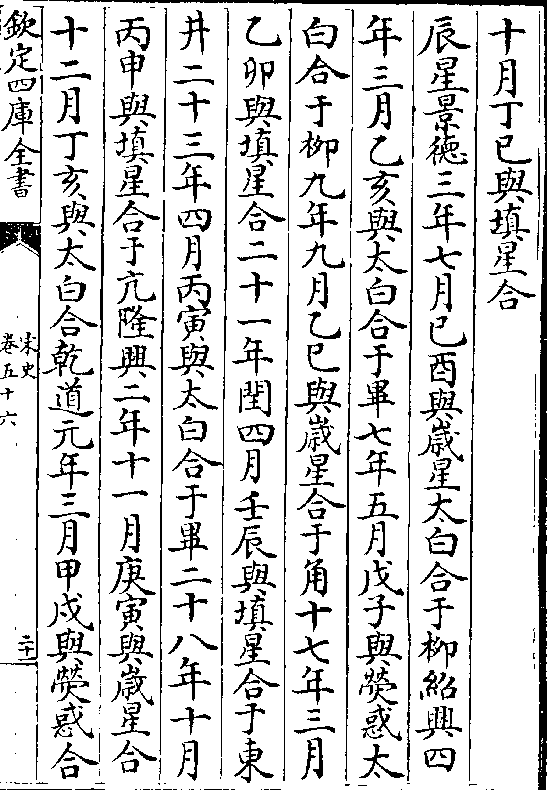 十月丁巳與填星合
辰星景徳三年七月已酉與嵗星太白合于柳紹興四
年三月乙亥與太白合于畢七年五月戊子與熒惑太
白合于柳九年九月乙巳與嵗星合于角十七年三月
乙卯與填星合二十一年閏四月壬辰與填星合于東
井二十三年四月丙寅與太白合于畢二十八年十月
丙申與填星合于亢隆興二年十一月庚寅與嵗星合
十二月丁亥與太白合乾道元年三月甲戍與熒惑合
欽定四庫全書
宋史
卷五十六
二十一